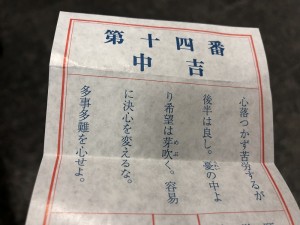 第十四番
中吉
心落つかず苦労するが
後半は良し。憂の中よ
り希望は芽吹く。容易
に決心を変えるな。
多事多難を心せよ。